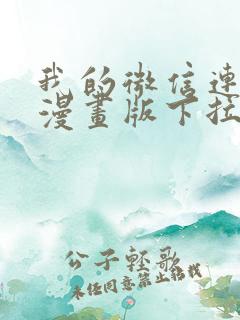 我的微信連
漫畫版下拉
公子輕歌
未经同意禁止转载